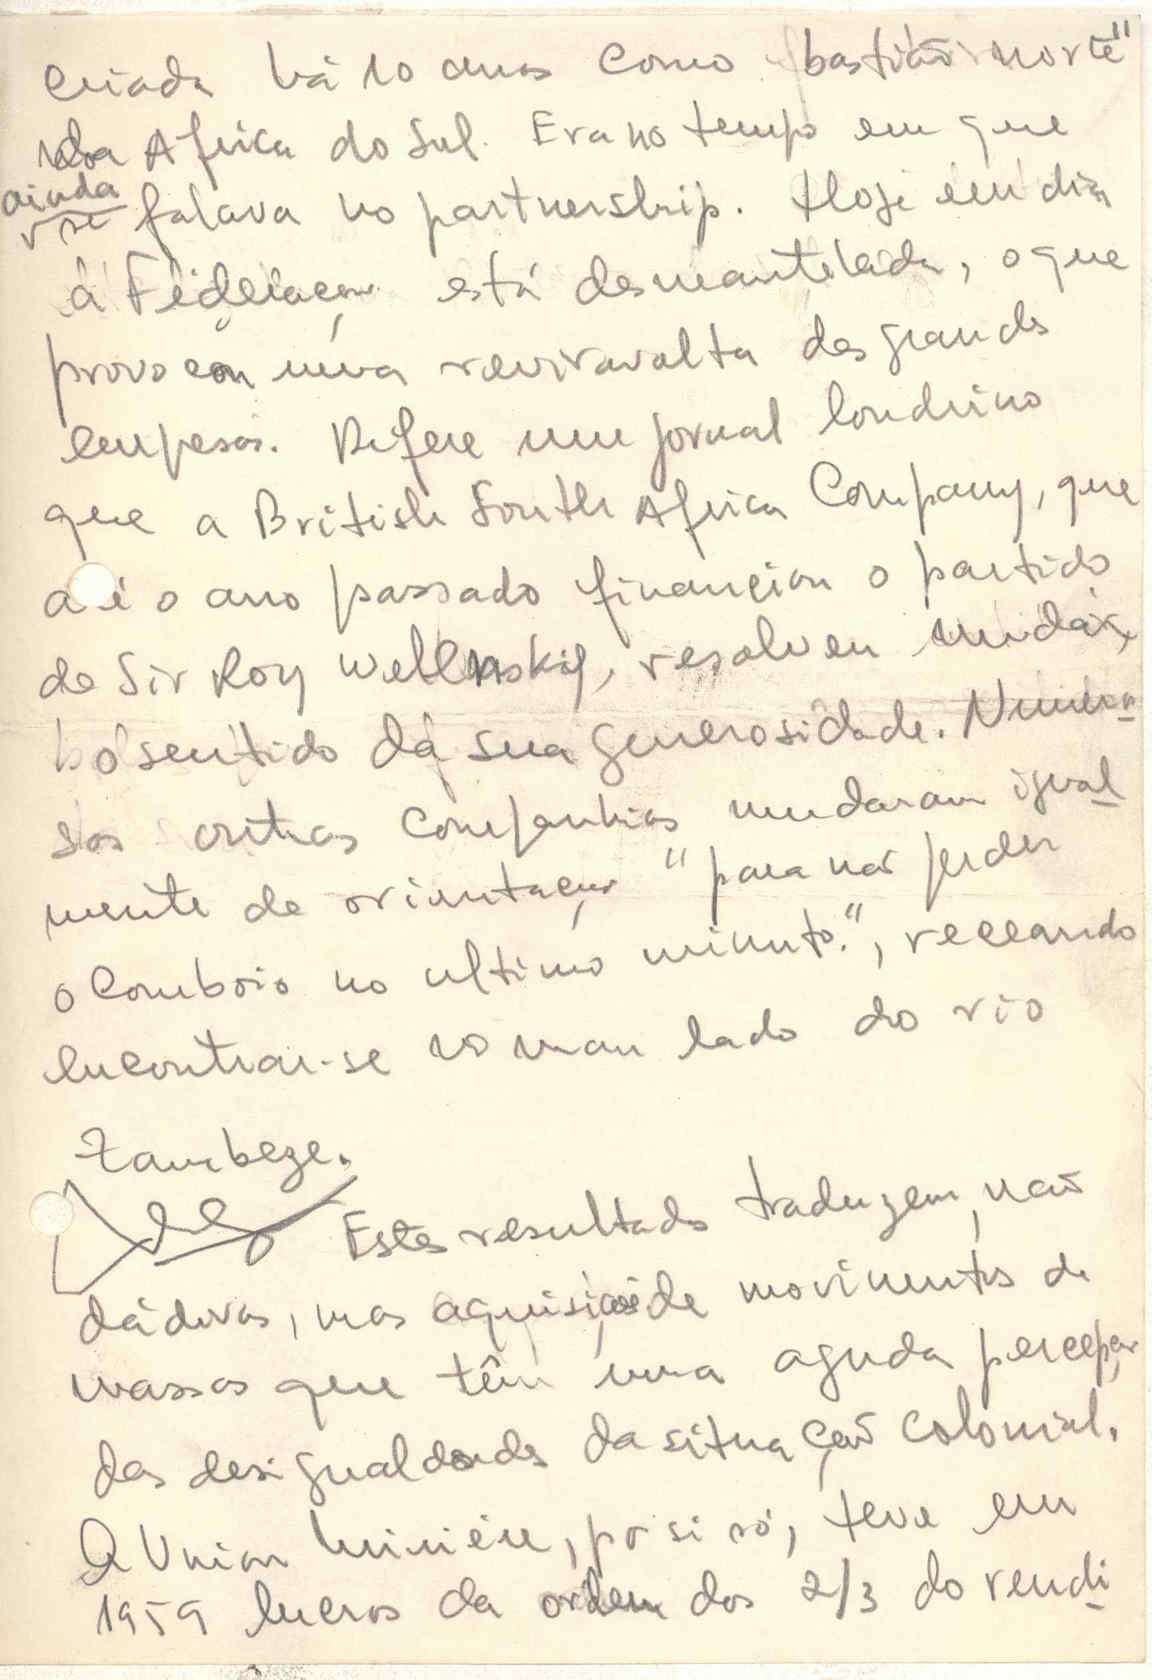 criada há 10 anos como "bastião norte"
da Africa do Sul. Era no tempo em que
ainda
se falava no partnership. Hoje em dia
a Federação está desmantelada, o que
provocou uma reviravolta das grandes
empesas. Refere um jornal londrino
que a British South Africa Company, que
até o ano passado financiou o partido
de Sir Roy Wellenskiy, resolveu mudar
o sentido da sua generosidade. Numero-
sas outras Companhias mudaram igual-
mente de orientação "para não perder
o comboio no ultimo minuto.", receando
encontrar-se no mau lado do rio
Zambeze.
Estes resultados traduzem, não
dádivas, mas aquisições de movimentos de
massas que têm uma aguda percepção
das desigualdades da situação colonial.
A Union Minière, por si só, teve em
1959 lucros da ordem dos 2/3 do rendi-